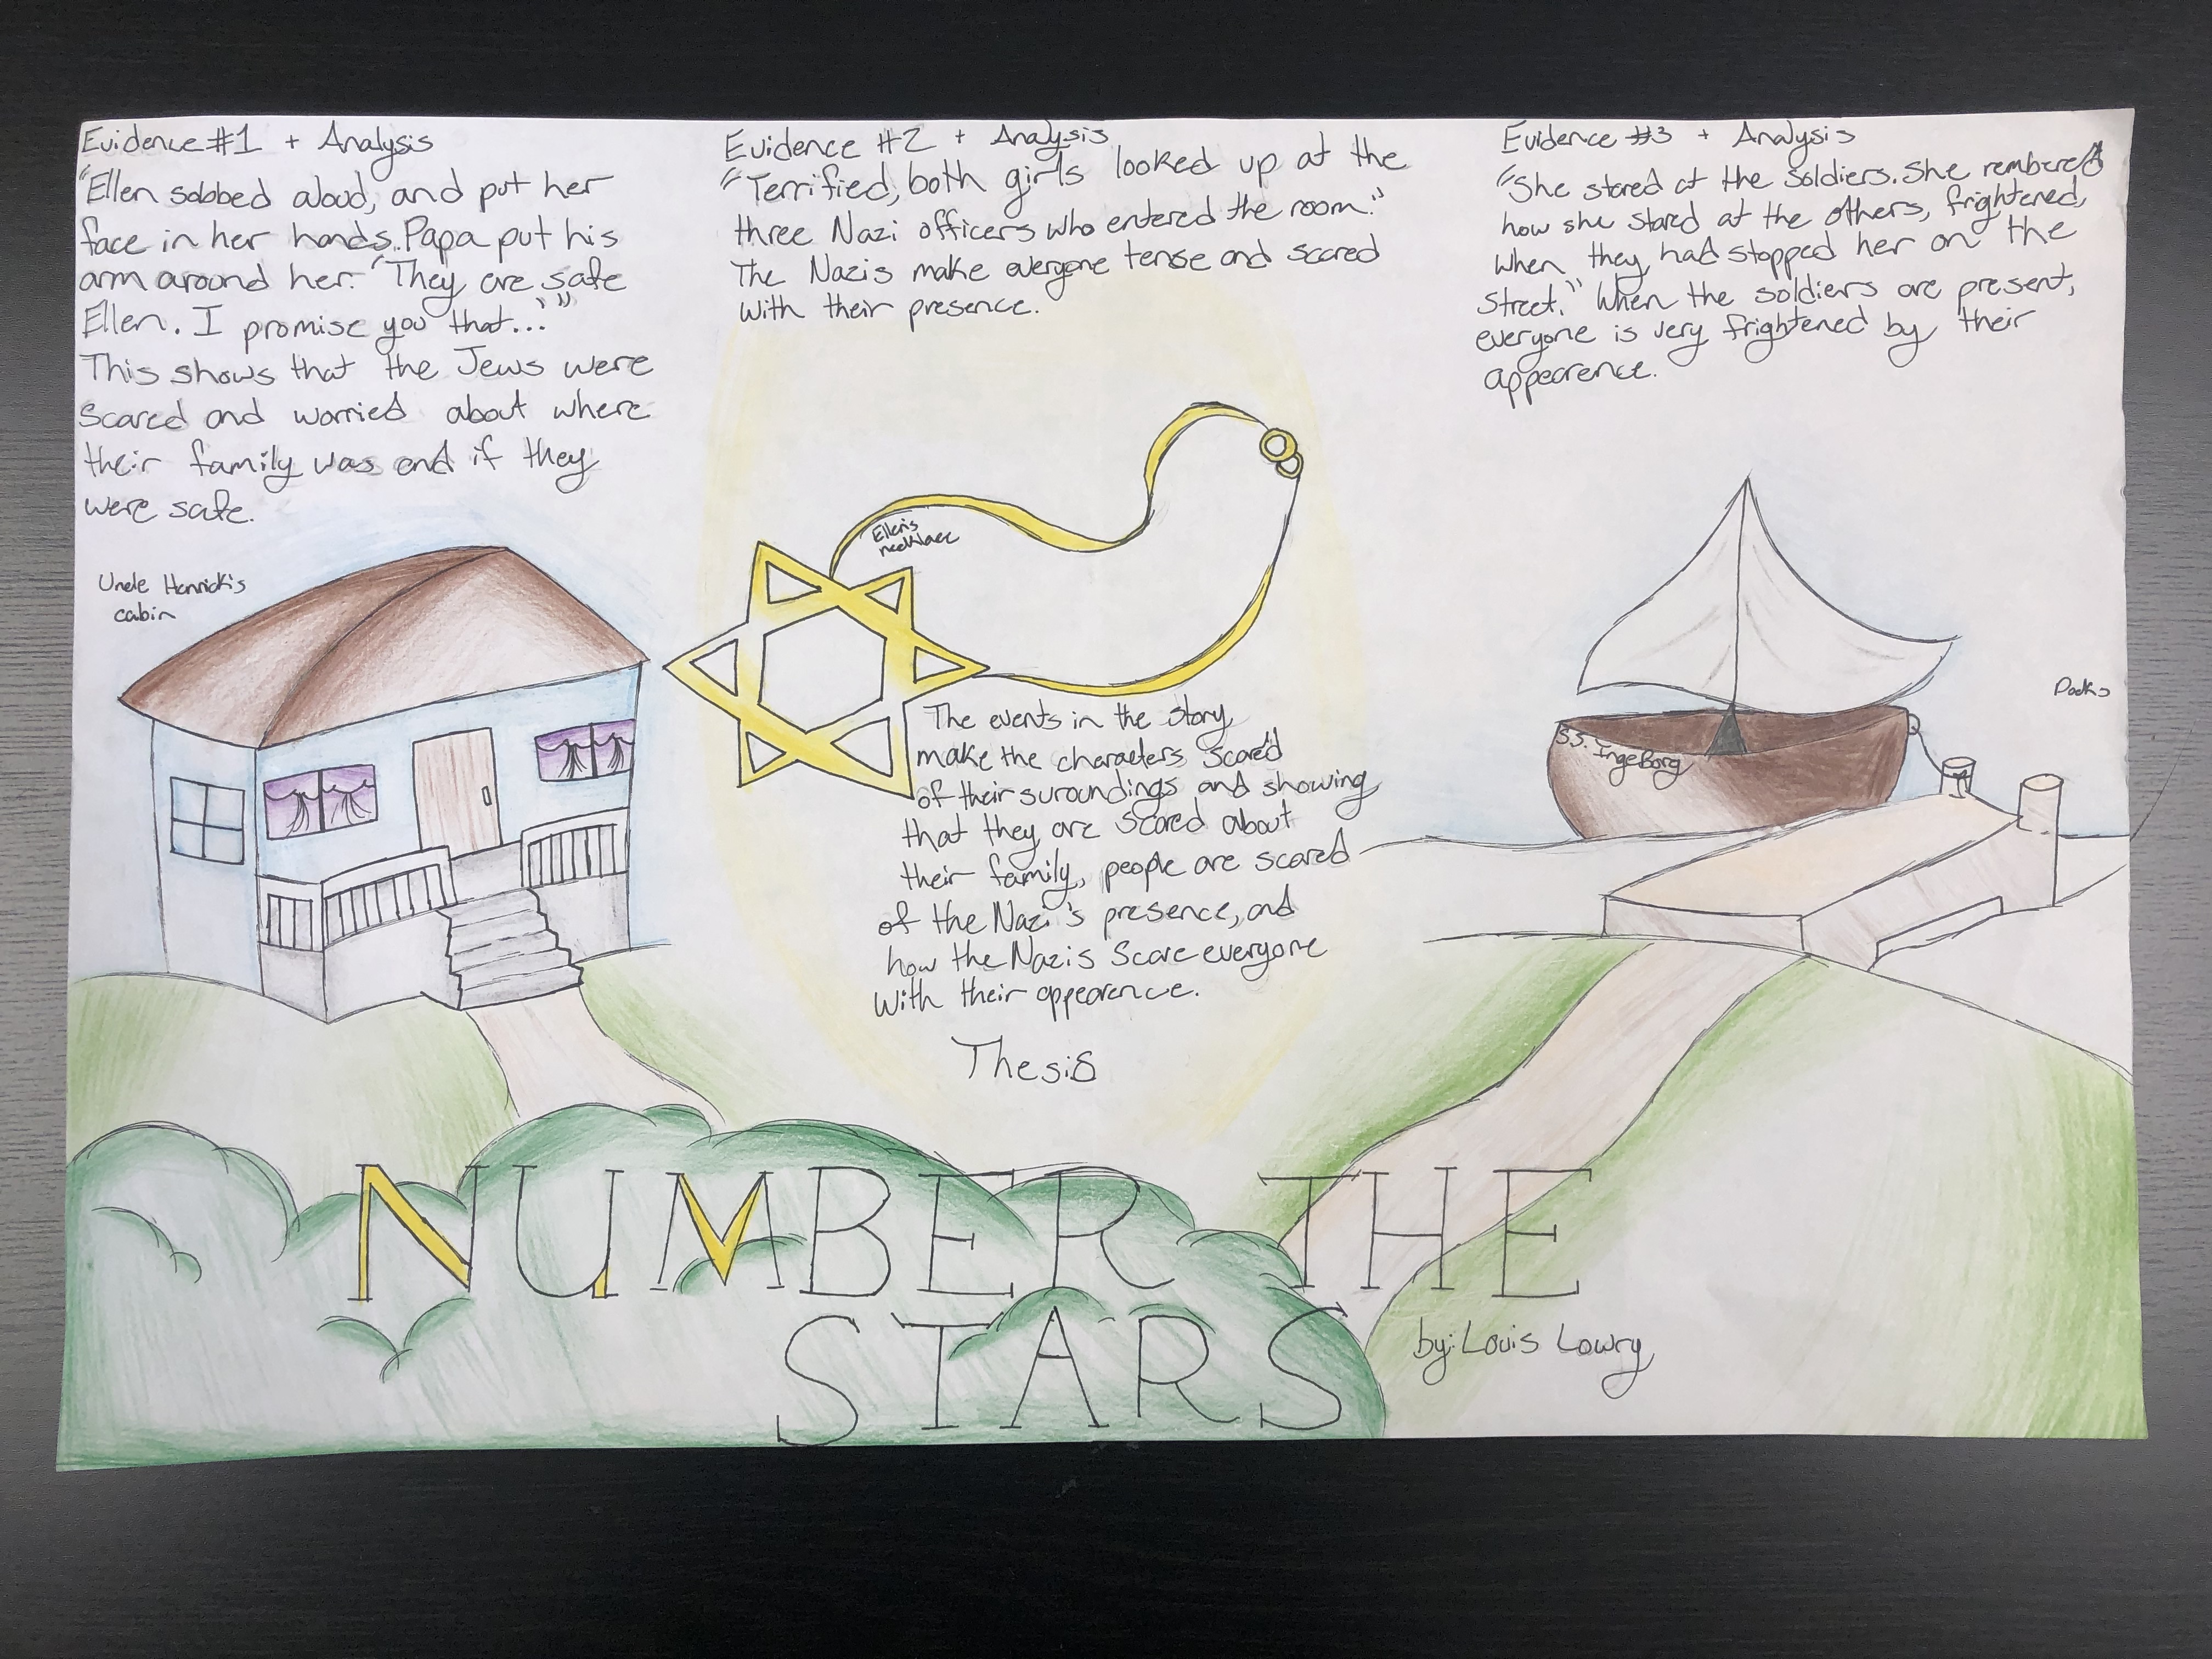 Evidence #1 + Analysis
"Ellen sobbed aloud, and put her
face in her hands. Papa put his
arm around her. "They are safe
Ellen. I promise you that...'"
This shows that the Jews were
scared and worried about where
their family was and if they
were safe.
Uncle Henrick's
cabin
Evidence #2 + Analysis
"Terrified, both girls looked up at the
three Nazi officers who entered the room."
The Nazis make everyone tense and scared
with their presence.
Ellen's
necklace
The events in the story
make the characters scared
of their suroundings and showing
that they are scared about
their family, people are scared
of the Nazi's presence, and
how the Nazis scare everyone
with their appearence.
Thesis
Evidence #3 + Analysis
"She stared at the soldiers. She rembered
how she stared at the others, frightened,
when they had stopped her on the
street." When the soldiers are present,
everyone is very frightened by their
appearence.
Docks
S.S. IngeBorg
NUMBER THE
STARS
by: Louis Lowry